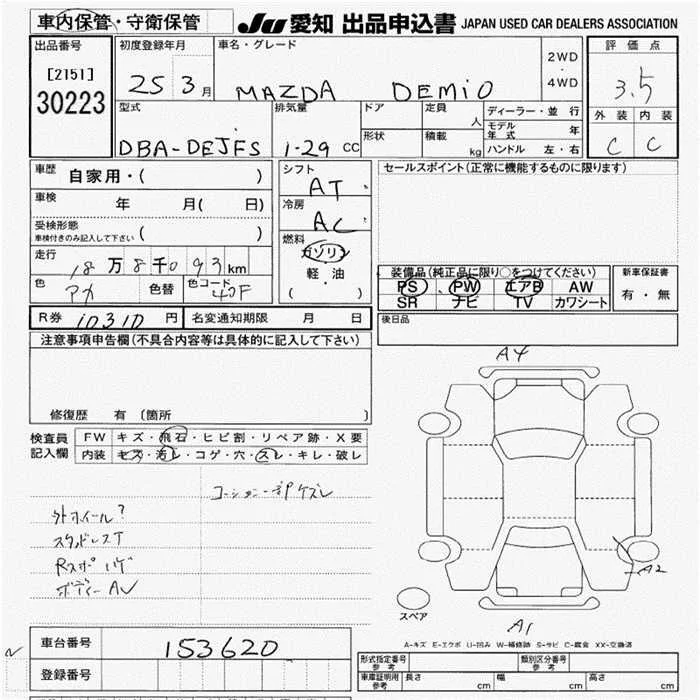 車内保管・守衛保管
JU 愛知 出品申込書 JAPAN USED CAR DEALERS ASSOCIATION
出品番号
[2151]
30223
初度登録年月
25 3 月
車名・グレード
MAZDA DEMIO
2WD
・
4WD
評価点
3.5
外装 内装
C C
型式
DBA-DEJFS
排気量
1-29 CC
ドア
形状
定員
人
積載
kg
ディーラー・並 行
モデル年式 年
ハンドル 左・右
車歴 自家用・( )
車検 年 月( 日)
受検形態
車検付きのみ記入して下さい ( )
走行
18 万 8 千 093 km
色 アカ
色替
色コード
シフト
AT
冷房
AC
燃料
ガソリン
軽・油
( ・ )
セールスポイント(正常に機能するものに限ります)
装備品(純正品に限り○をつけてください)
PS PW エアB AW
SR ナビ TV カワシート
新車保証書
有・無
R券 10310 円
名変通知期限 月 日
後日品
注意事項申告欄(不具合内容等は具体的に記入して下さい)
修復歴 有 (箇所 )
検査員記入欄
FW キズ・飛石・ヒビ割・リペア跡・X要
内装 キズ・汚レ・コゲ・穴・スレ・キレ・破レ
外ホイール?
スタッドレスT
Rスポ ハゲ
ボディー AU
A4
A2
A1
スペア
A-キズ E-エクボ U-凹み W-補修跡 S-サビ C-腐食 XX-交換済
車台番号 153620
登録番号
形式指定番号 参考
類別区分番号 参考
車庫証明用 参考 長さ cm 幅 cm 高さ cm